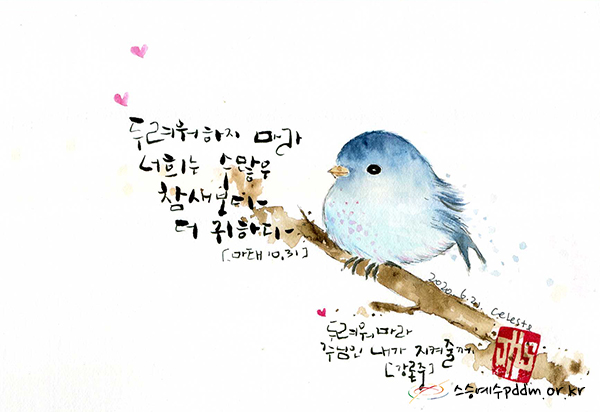 두려워하지 마라
너희는 수많은
참새보다
더 귀하다
[마태 10,31]
2020. 6. 21. Celeste
두려워 마라
주님인 내가 지켜줄께
[강론 중]
JHS
스승예수pddm.or.kr